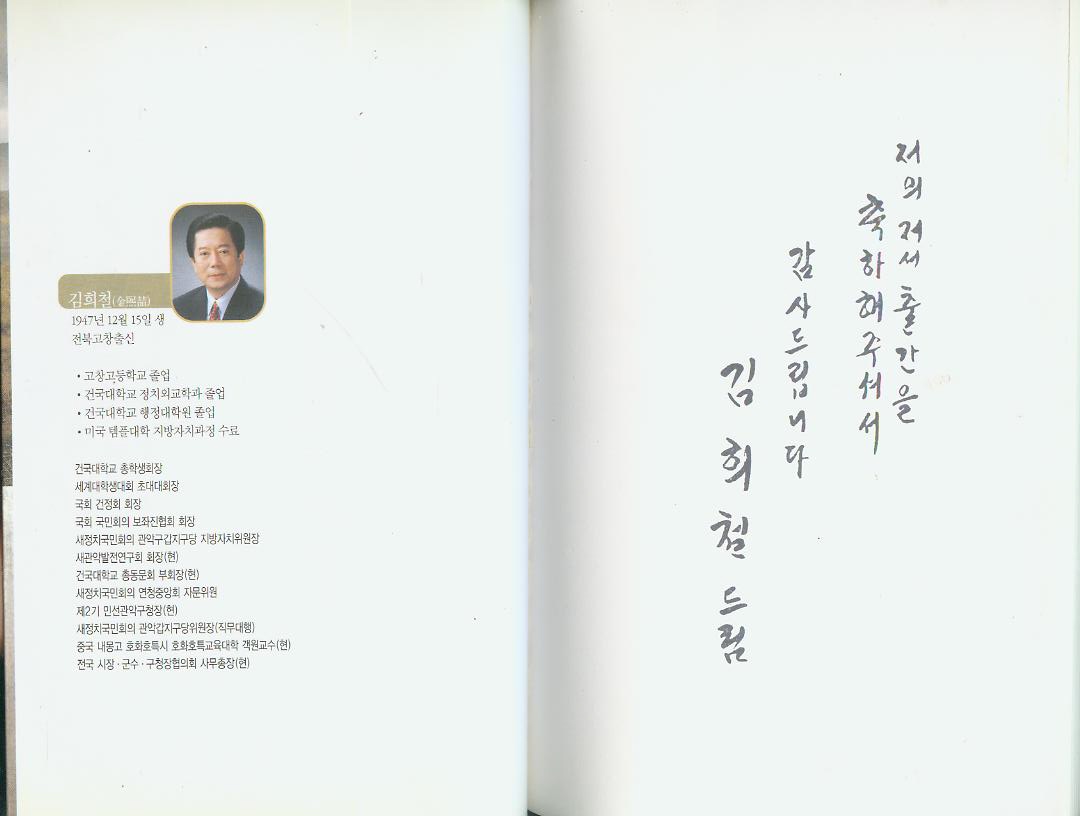 김희철(金熙喆)
1947년 12월 15일 생
전북고창출신
• 고창고등학교 졸업
• 건국대학교 정치외교학과 졸업
• 건국대학교 행정대학원 졸업
• 미국 템플대학 지방자치과정 수료
건국대학교 총학생회장
세계대학생대회 초대대회장
국회 건정회 회장
국회 국민회의 보좌진협회 회장
새정치국민회의 관악구갑지구당 지방자치위원장
새관악발전연구회 회장(현)
건국대학교 총동문회 부회장(현)
새정치국민회의 연청중앙회 자문위원
제2기 민선관악구청장(현)
새정치국민회의 관악갑지구당위원장(직무대행)
중국 내몽고 호화호특시 호화호특교육대학 객원교수(현)
전국 시장·군수·구청장협의회 사무총장(현)
저의 저서 출간을
축하해주셔서
감사드립니다
김희철 드림